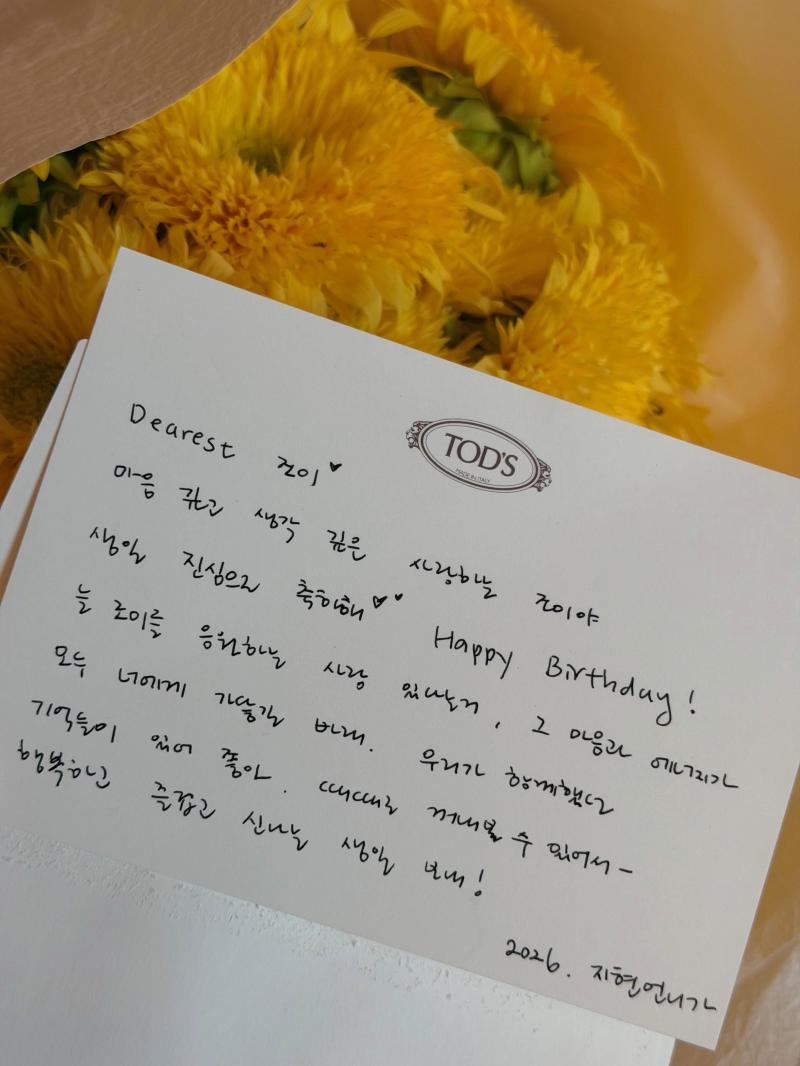 TOD'S
MADE IN ITALY
Dearest 조이♥
마음 깊고 생각 깊은 사랑하는 조이야
생일 진심으로 축하해♥♥ Happy Birthday!
늘 조이를 응원하는 사람 있다는거, 그 마음과 에너지가
모두 너에게 가닿길 바래. 우리가 함께했던
기억들이 있어 좋아. 때때로 꺼내볼 수 있어서-
행복하고 즐겁고 신나는 생일 보내!
2026. 지현언니가